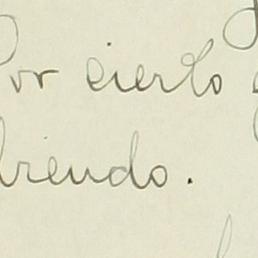 Por cierto
briendo.